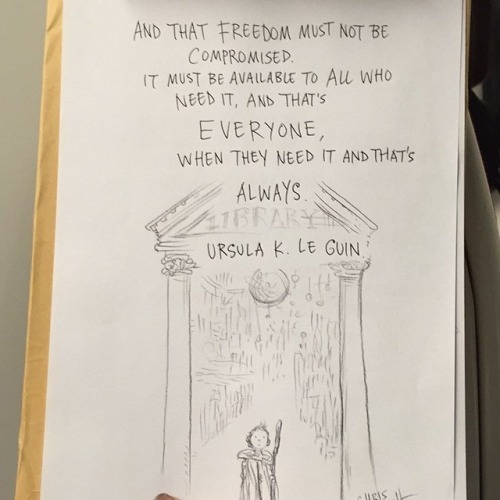 AND THAT FREEDOM MUST NOT BE
COMPROMISED.
IT MUST BE AVAILABLE TO ALL WHO
NEED IT, AND THAT'S
EVERYONE,
WHEN THEY NEED IT AND THAT'S
ALWAYS.
LIBRARY
URSULA K. LE GUIN.
CHRIS